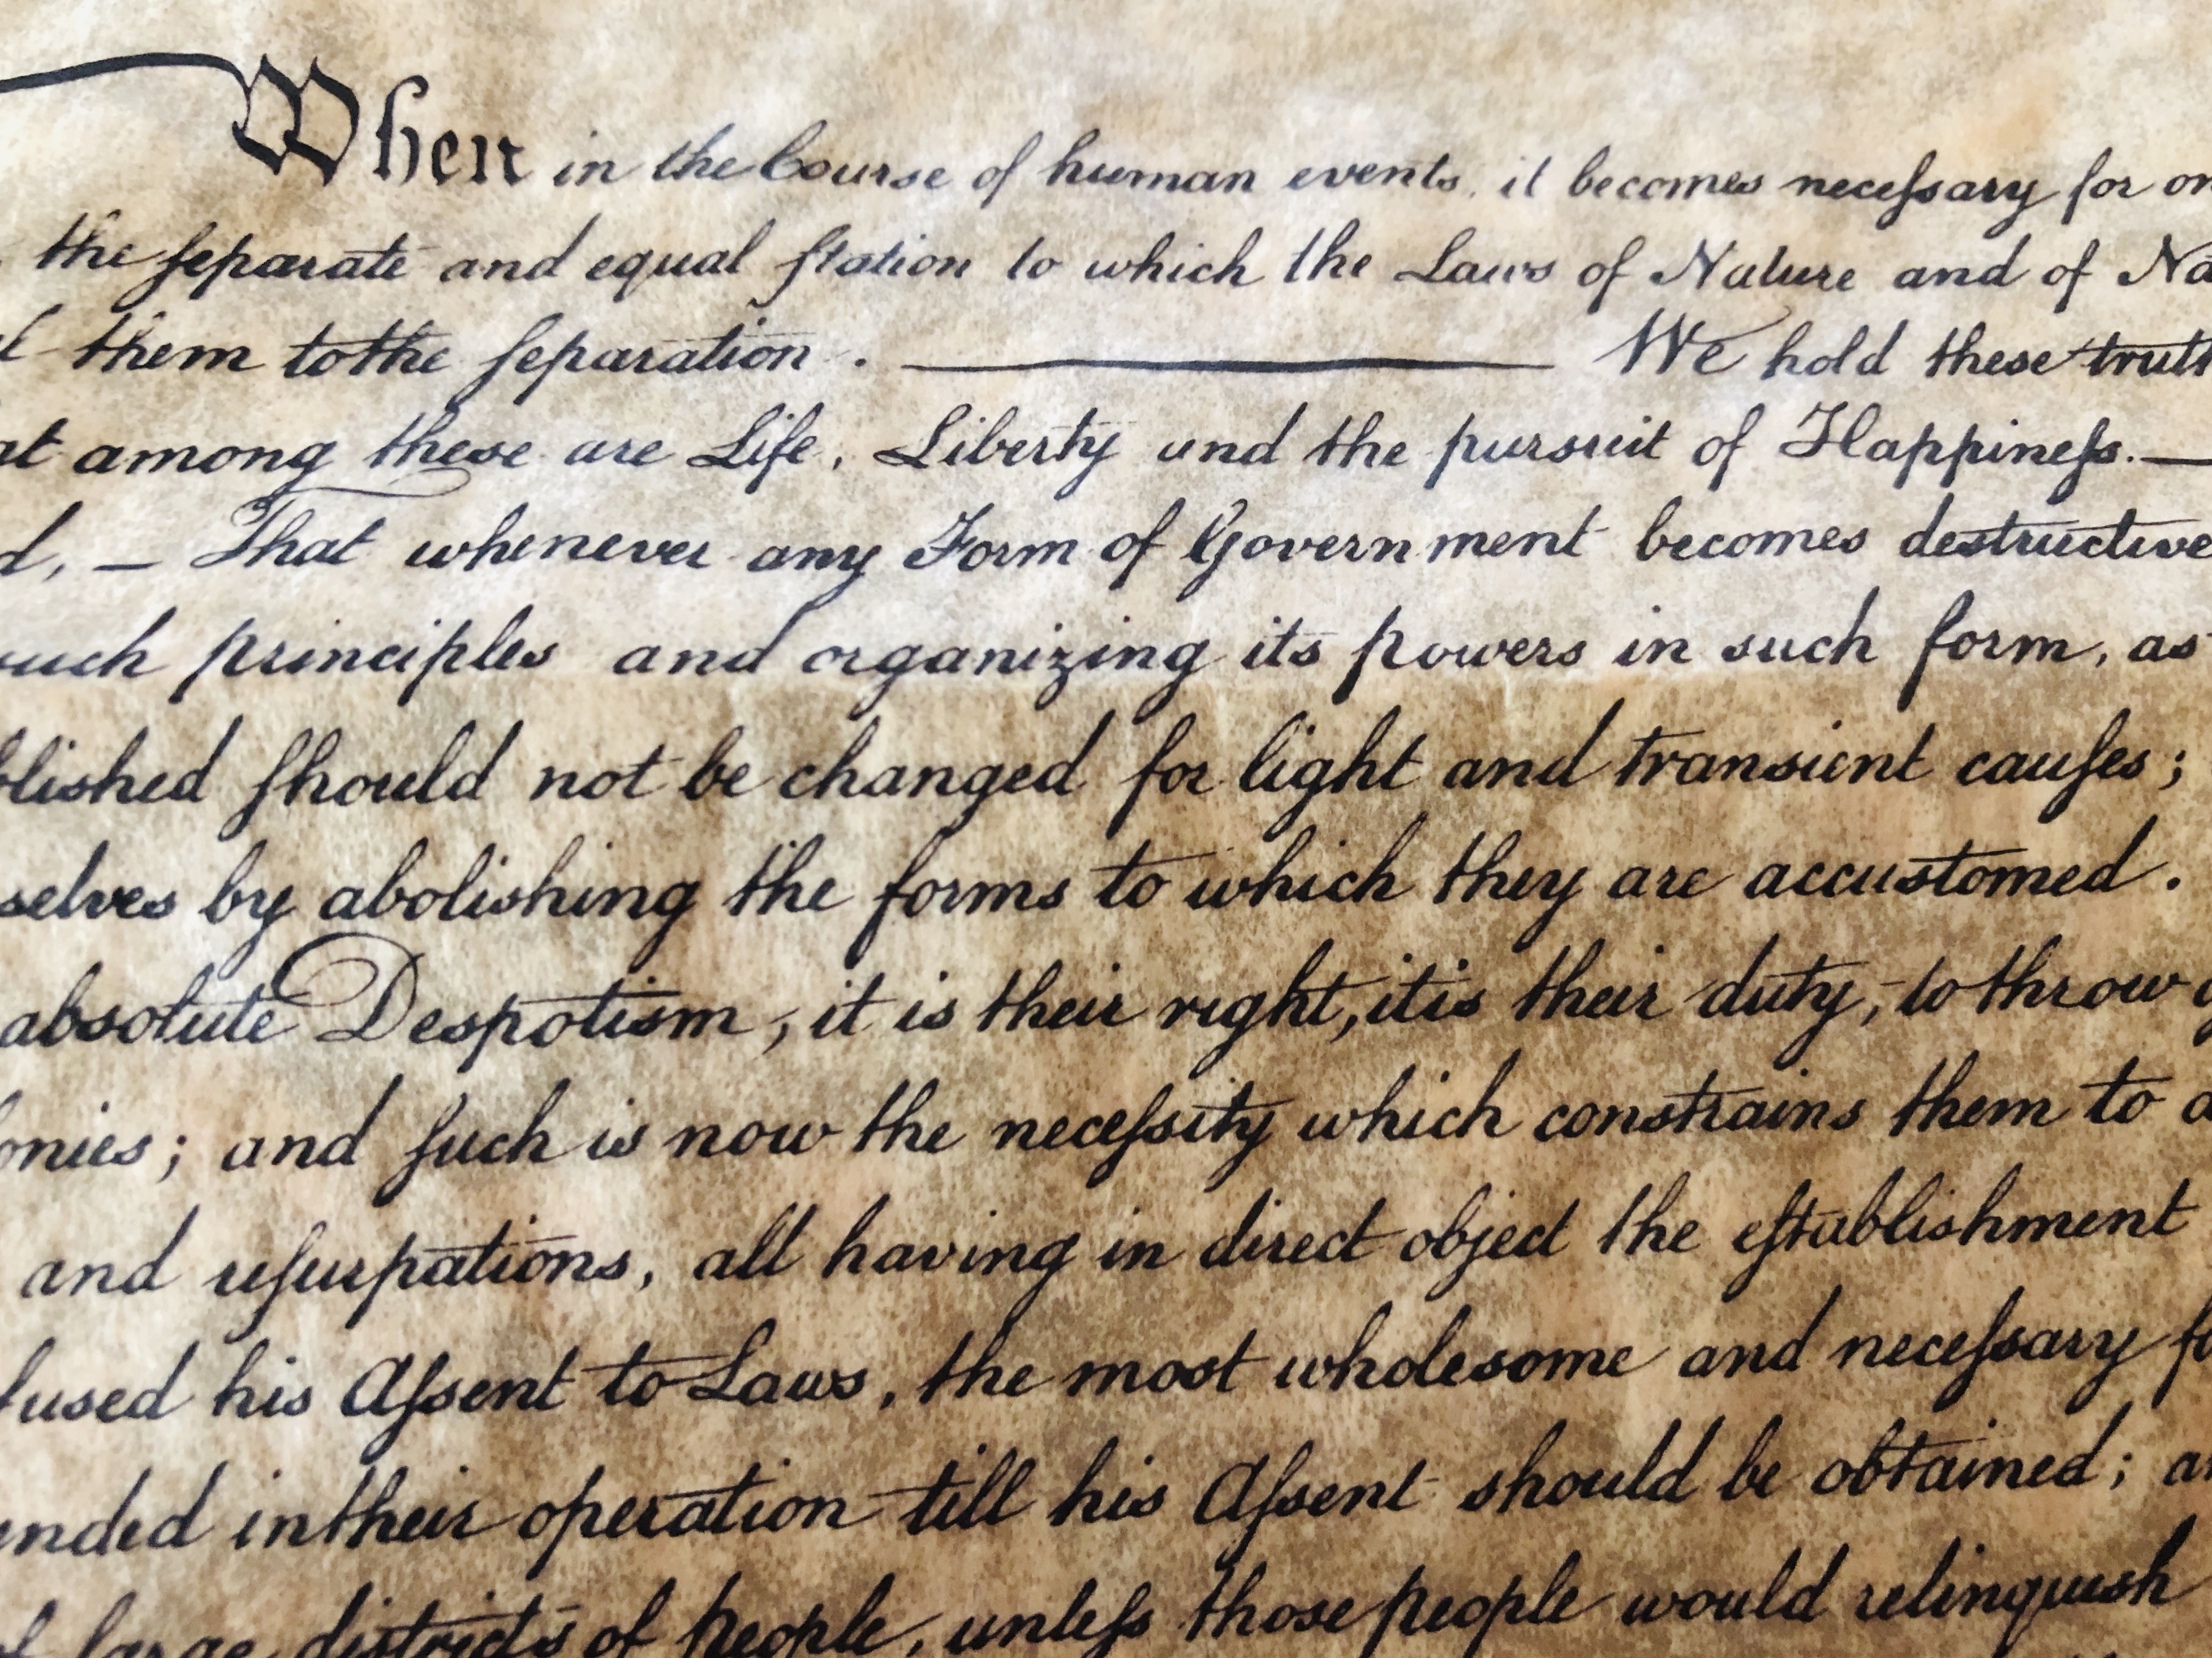 When in the Course of human events, it becomes neceſsary for on
the ſeparate and equal ſtation to which the Laws of Nature and of Na
l them to the ſeparation. ——— We hold these truth
at among these are Life, Liberty and the pursuit of Happineſs.—
d, — That whenever any Form of Government becomes destructive
uch principles and organizing its powers in such form, as
blished ſhould not be changed for light and transient cauſes;
selves by abolishing the forms to which they are accustomed.
absolute Despotism, it is their right, it is their duty, to throw o
onies; and ſuch is now the neceſsity which constrains them to a
and uſurpations, all having in direct object the eſtablishment
fused his Aſsent to Laws, the most wholesome and neceſsary fo
ended in their operation till his Aſsent should be obtained; an
of large districts of people, unleſs those people would relinquish